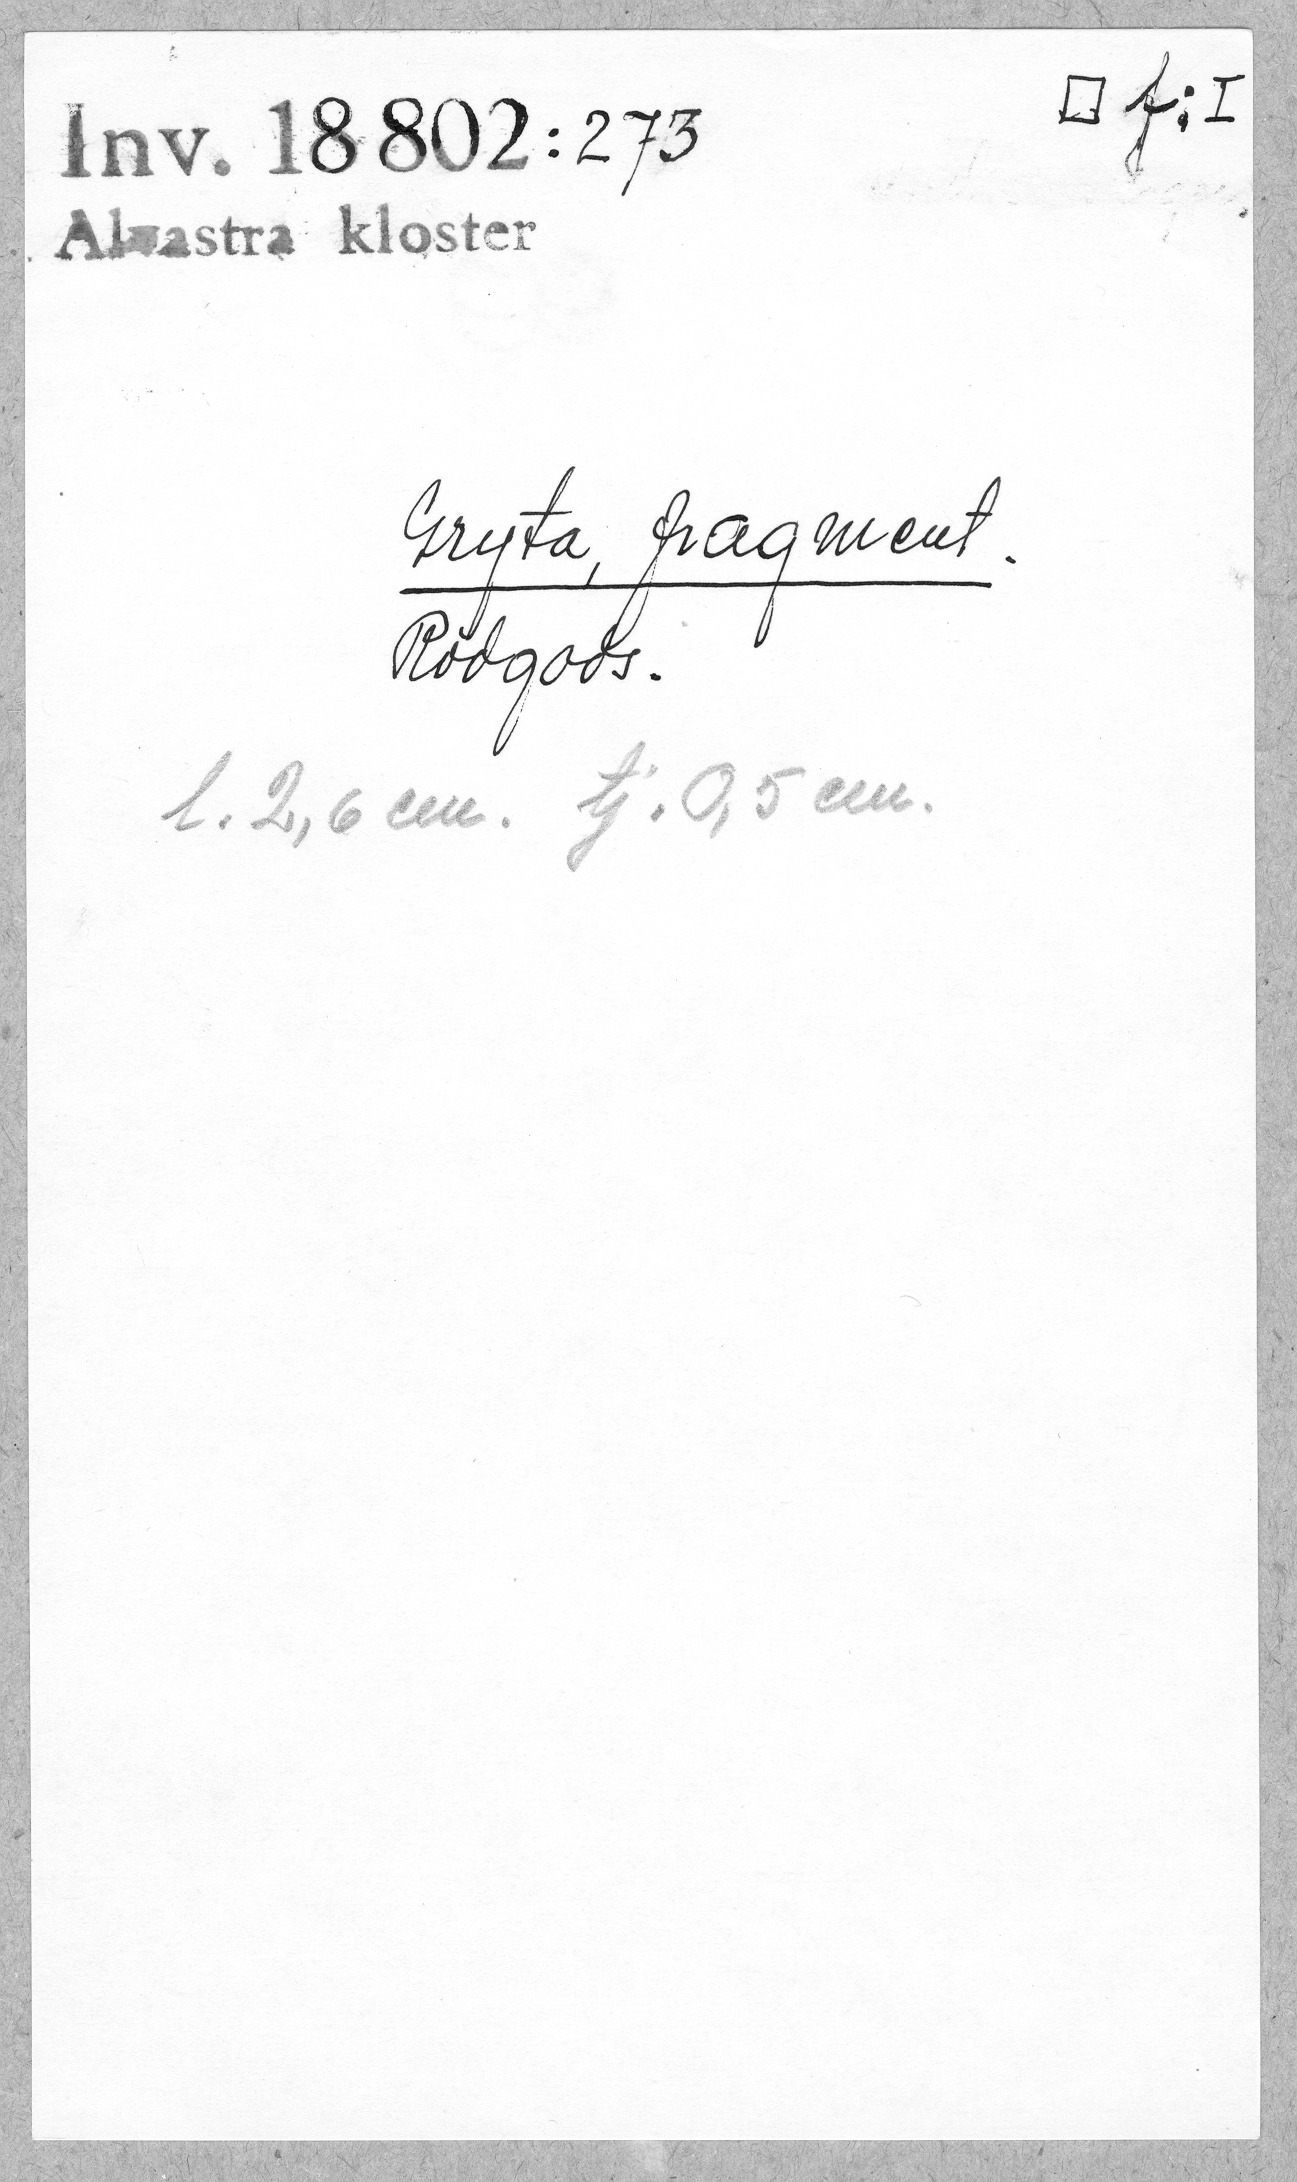 Inv. 18 802:273
□ f:I
Alvastra kloster
Gryta, fragment.
Rödgods.
l. 2,6 cm. tj. 0,5 cm.